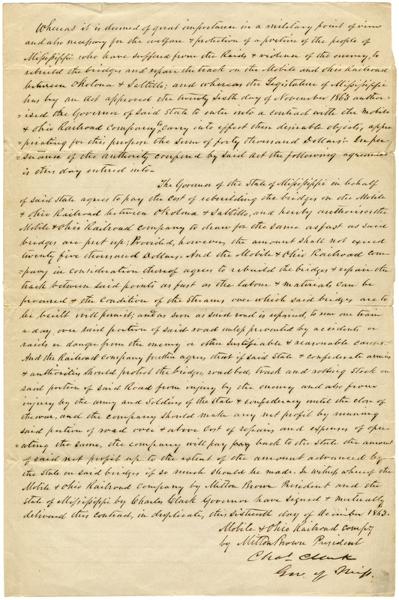 Whereas it is deemed of great importance in a military point of view
and also necessary for the welfare & protection of a portion of the people of
Mississippi who have suffered from the Raids & violence of the enemy, to
rebuild the bridges and repair the track on the Mobile and Ohio Railroad
between Okolona & Saltillo, and whereas the Legislature of Mississippi
has by an Act approved the twenty sixth day of November 1863 author-
ised the Governor of said State to enter into a contract with the Mobile
& Ohio Railroad Company, "Carry into effect these desirable objects, appro-
priating for this purpose the Sum of forty thousand Dollars. In per-
suance of the authority confered by said Act the following agreement
is this day entered into
The Governor of the State of Mississippi in behalf
of said State agrees to pay the cost of rebuilding the bridges on the Mobile
& Ohio Railroad between Okolona & Saltillo, and hereby authorises the
Mobile & Ohio Railroad company to draw for the same as fast as said
bridges are put up. Provided, however, the amount shall not exceed
twenty five thousand Dollars. And the Mobile & Ohio Railroad com-
pany in consideration thereof agrees to rebuild the bridges & repair the
track between said points as fast as the labour & materials can be
procured & the condition of the streams over which said bridges are to
be built will permit; and as soon as said road is repaired, to run one train
a day over said portion of said road unless prevented by accidents or
raids or danger from the enemy or other Justifiable & reasonable causes.
And the Railroad company further agrees, that if said State & confederate armies
& authorities should protect the bridges, road bed, track and rolling Stock on
said portion of said Road from injury by the enemy and also from
injury by the army and Soldiers of the State & confederacy until the close of
the war, and the company should make any net profit by running
said portion of road over & above cost of repairs and expenses of oper-
ating the same, the company will pay back to the State the amount
of said net profit up to the extent of the amount advanced by
the State on said bridges if so much should be made. In witness whereof the
Mobile & Ohio Railroad Company by Milton Brown President and the
State of Mississippi by Charles Clark Governor have signed & mutually
delivered this contract, in duplicate, this sixteenth day of December 1863.
Mobile & Ohio Railroad Company
by Milton Brown President
Chas Clark
Gov. of Miss.